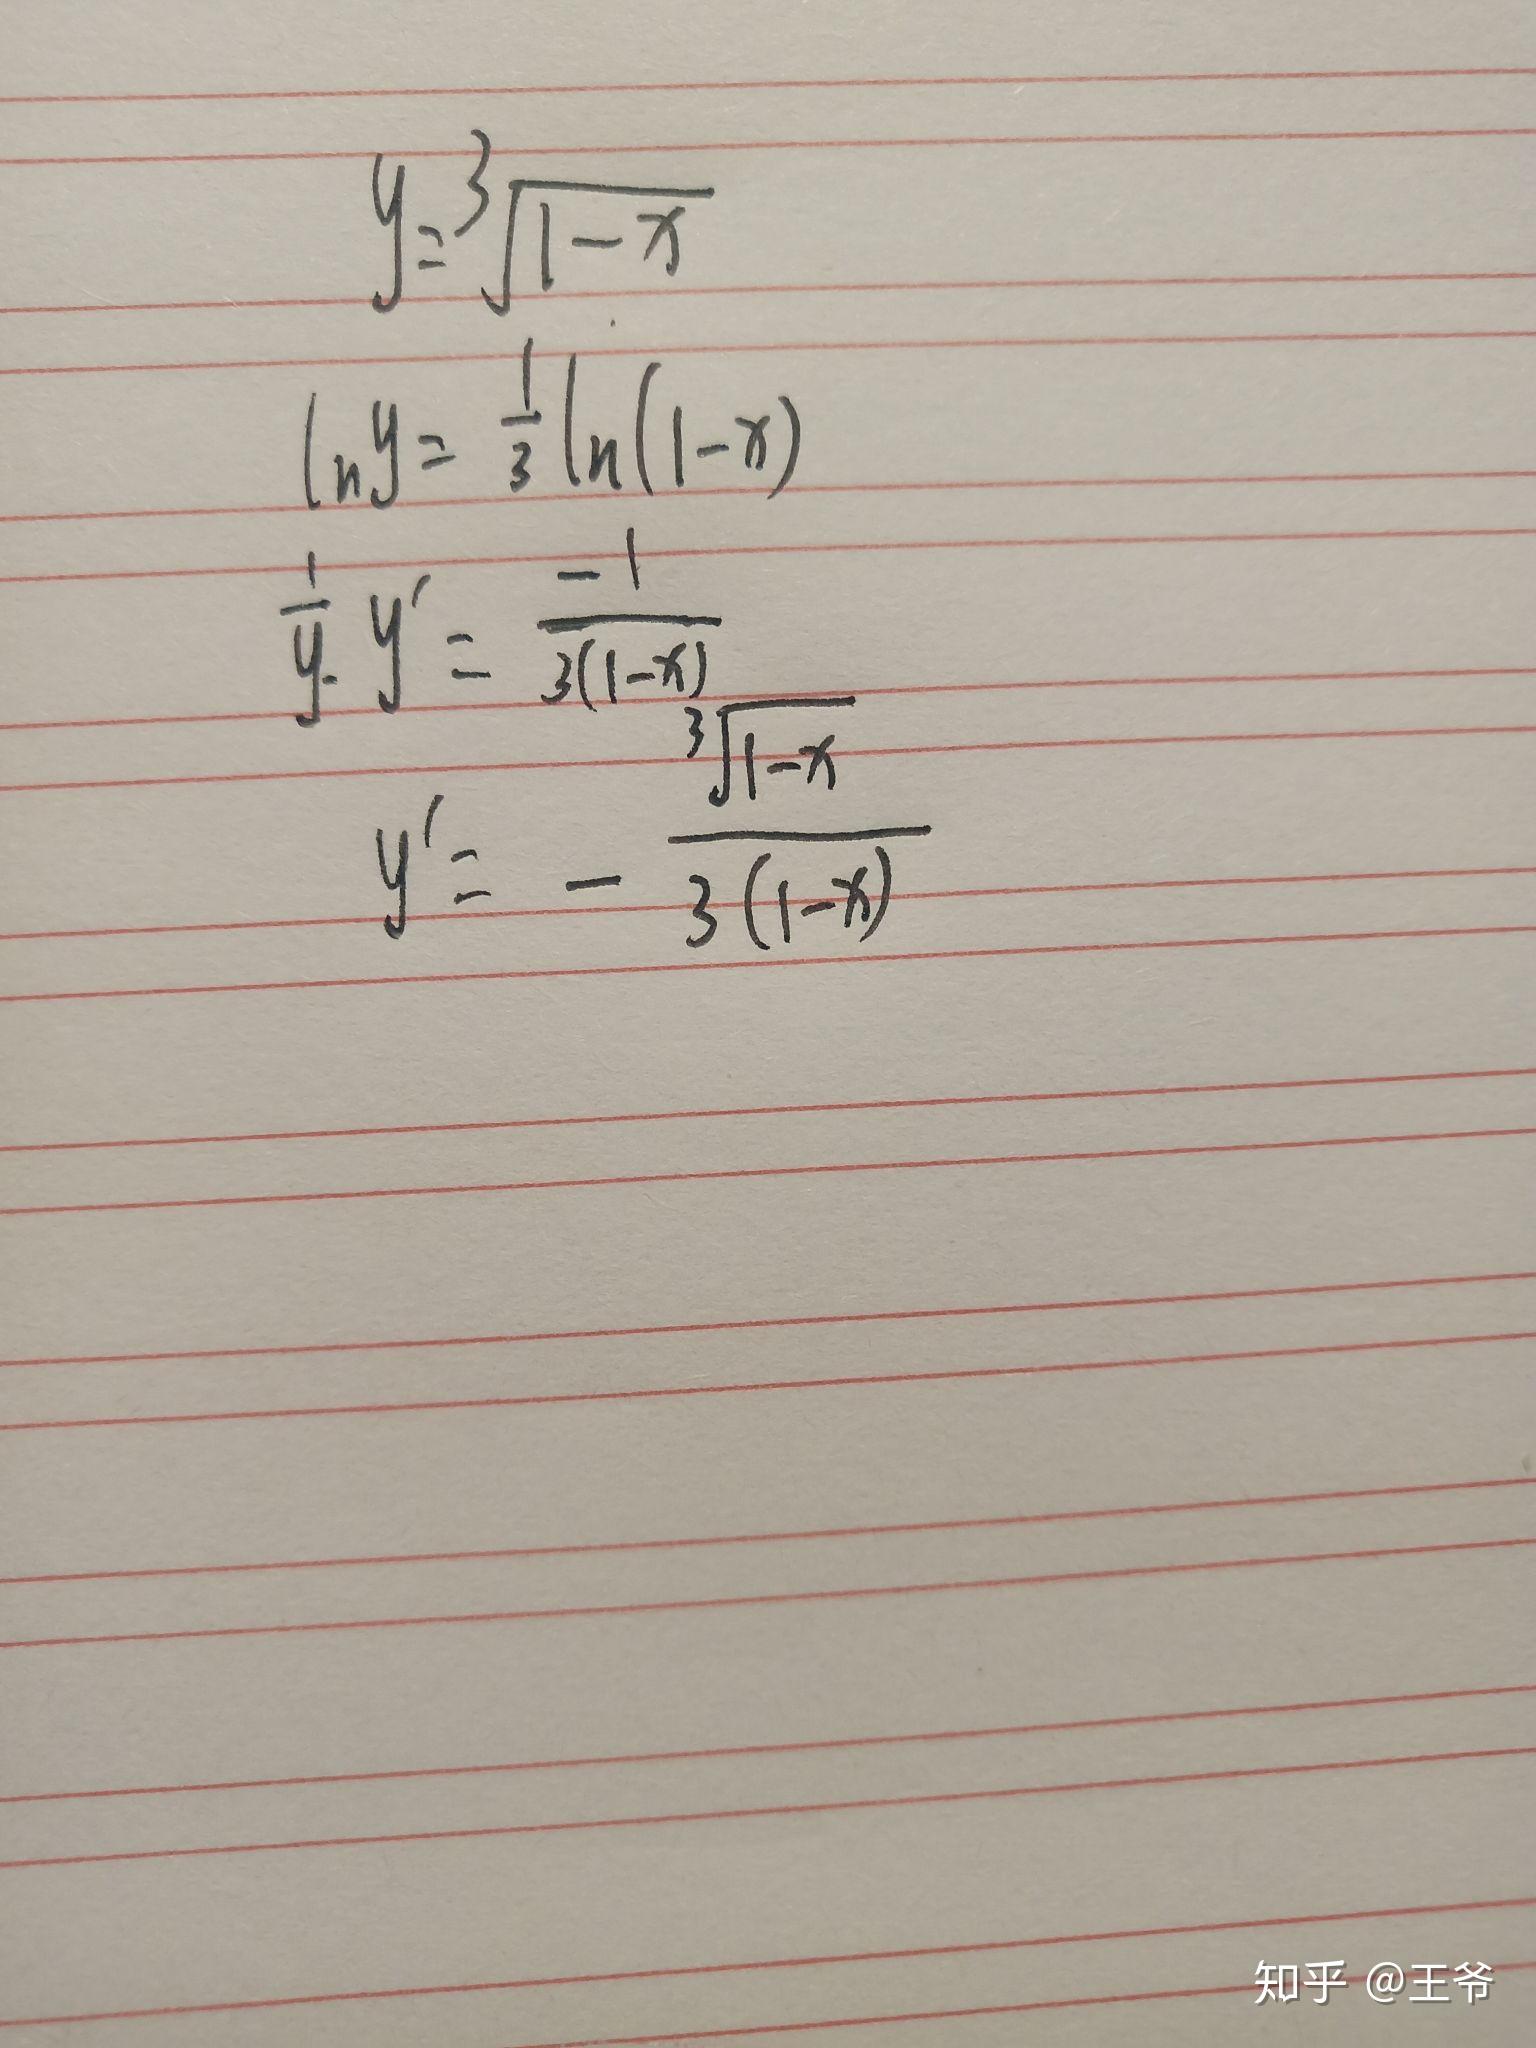 y=∛(1-x)
ln y = 1/3 ln(1-x)
1/y · y' = -1/(3(1-x))
y' = - ∛(1-x)/(3(1-x))
知乎 @王爷